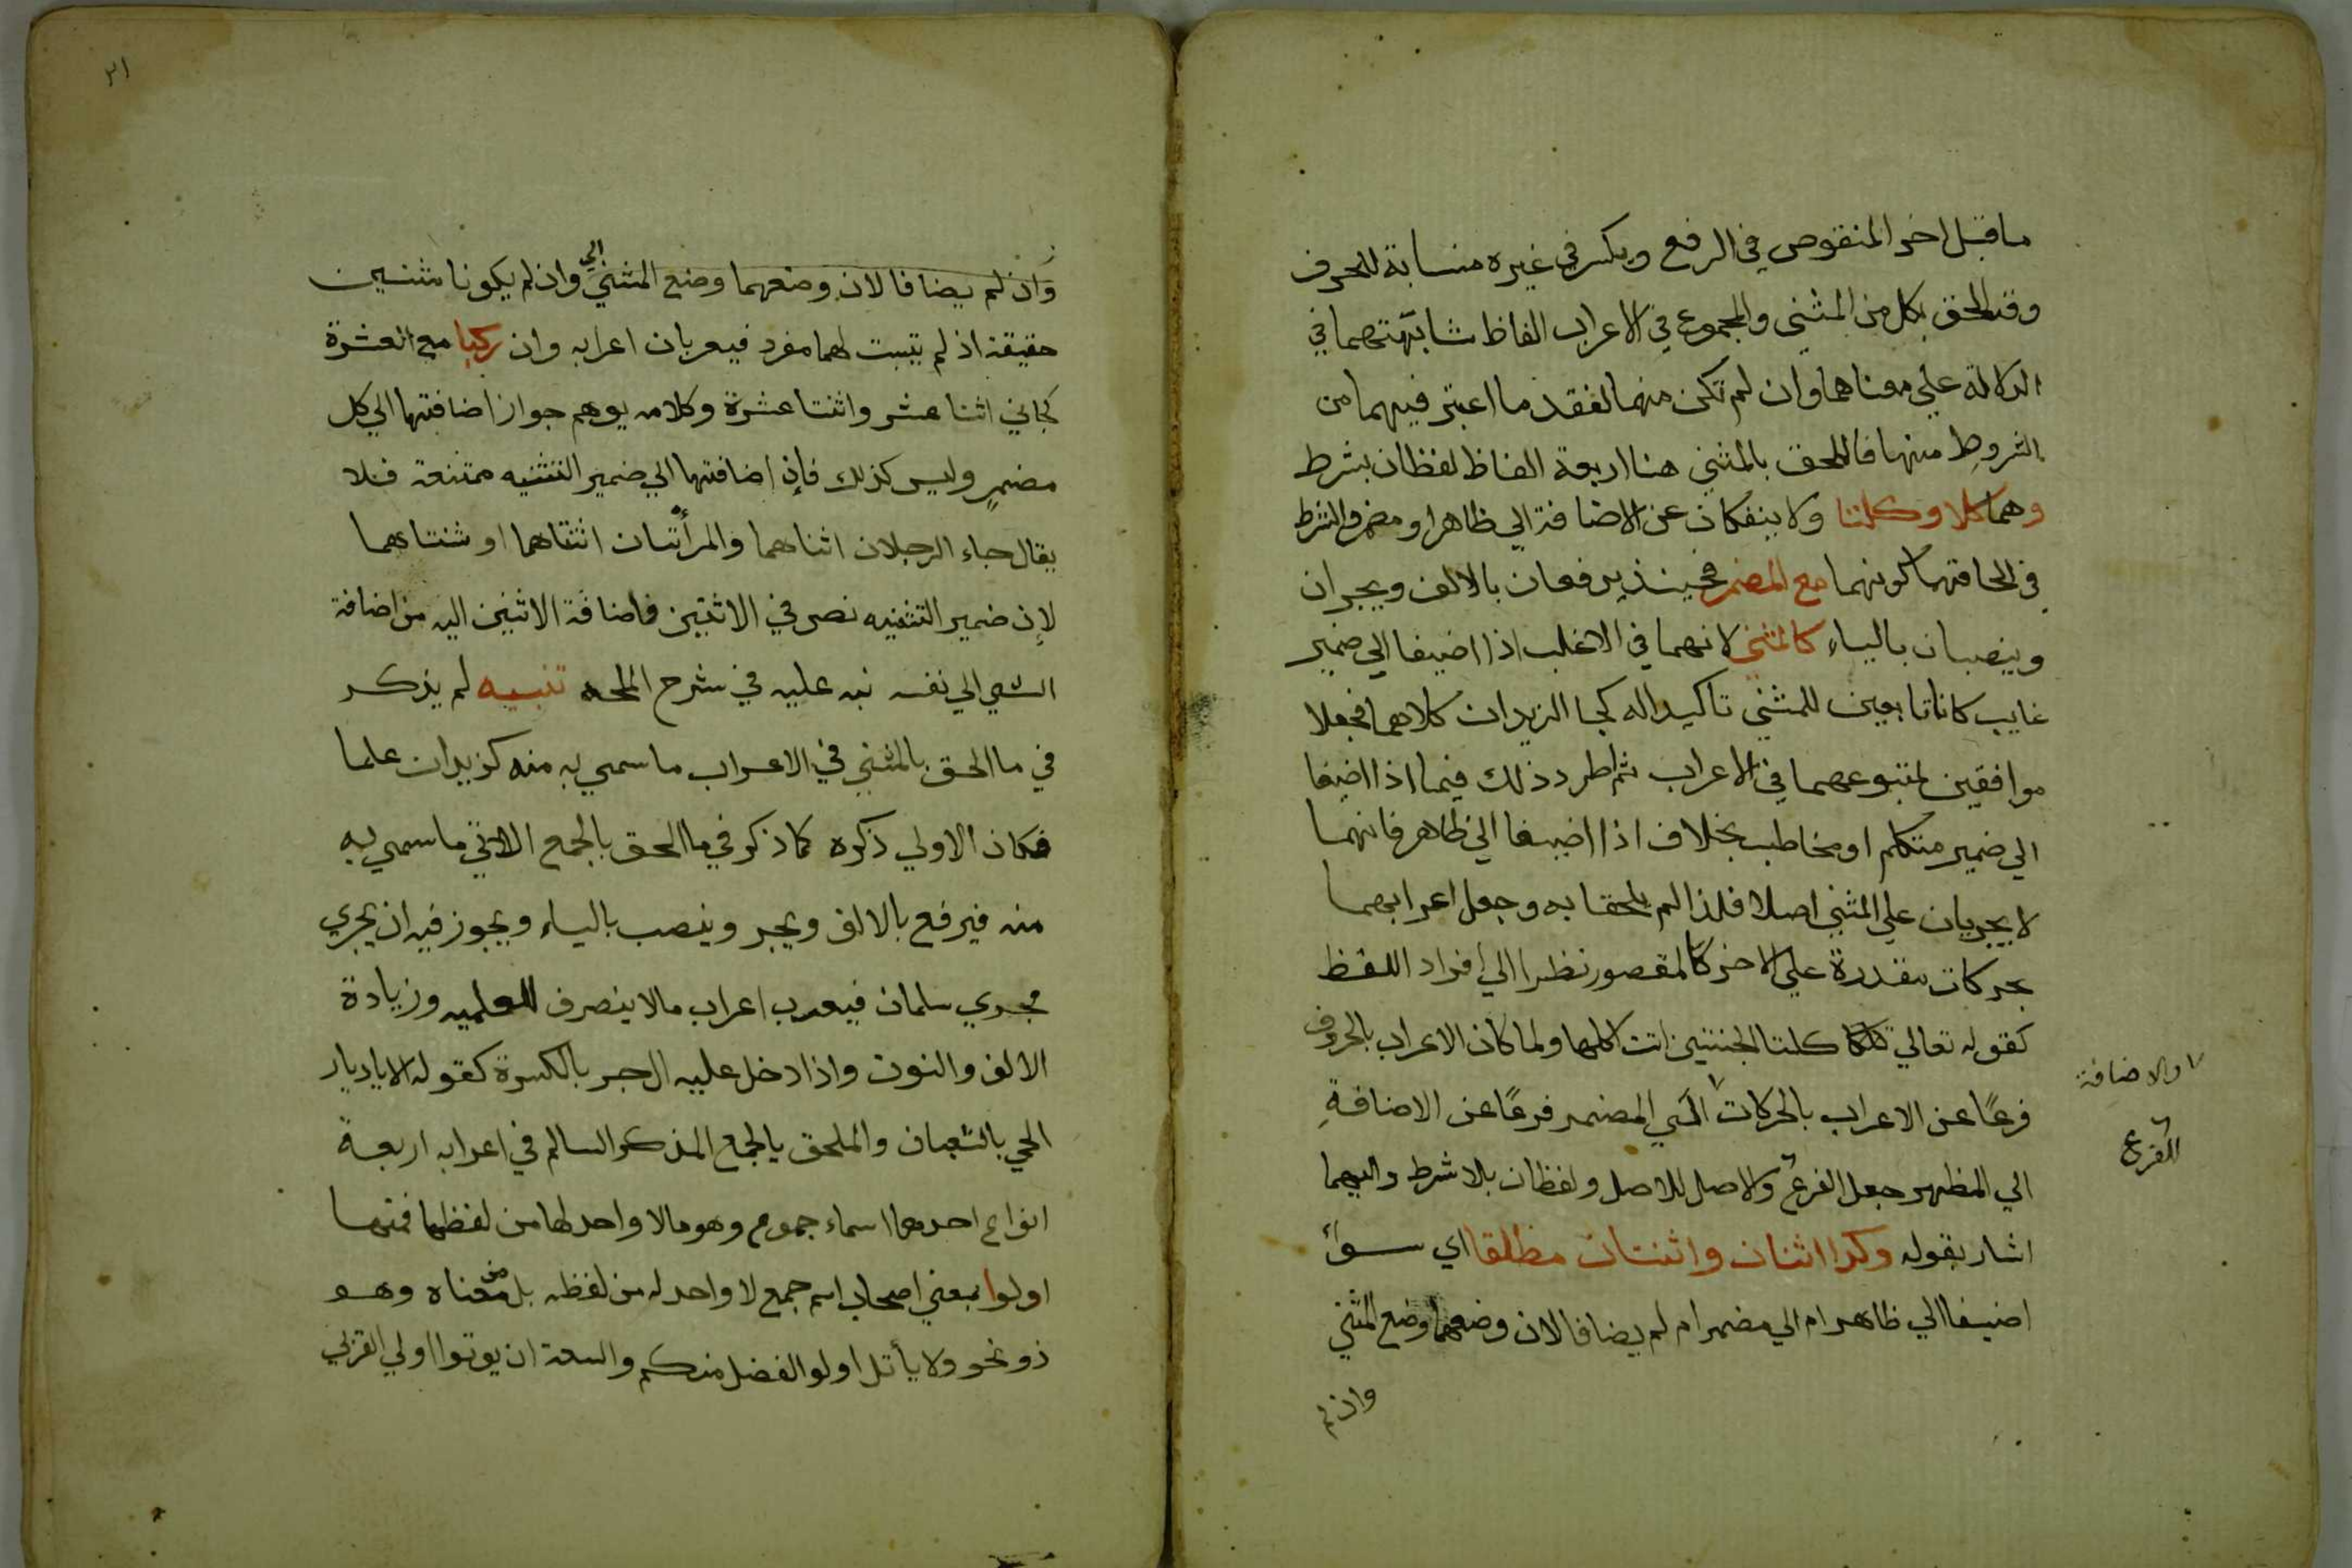 ما قبل اخر المنقوص في الرفع ويكسر في غيره مناسبة للحرف
وقد الحق بكل من المثني والمجموع في الاعراب الفاظ شابهتهما في
الدلالة علي معناهما وان لم تكن منهما لفقد ما اعتبر فيهما من
الشروط منها فالملحق بالمثني هنا اربعة الفاظ لفظان بشرط
وهما كلا وكلتا ولا ينفكان عن الاضافة الي ظاهر او مضمر والشرط
في الحاقهما كونهما مع المضمر فحينئذ يرفعان بالالف ويجران
وينصبان بالياء كالمثني لانهما في الاغلب اذا اضيفا الي ضمير
غايب كانا تابعين للمثني تاكيدا له كجا الزيدان كلاهما فجعلا
موافقين لمتبوعهما في الاعراب ثم اطرد ذلك فيما اذا اضيفا
الي ضمير متكلم او مخاطب بخلاف اذا اضيفا الي ظاهر فانهما
لا يجريان علي المثني اصلا فلذا لم يلحقا به وجعل اعرابهما
بحركات مقدرة علي الاخر كالمقصور نظرا الي افراد اللفظ
كقوله تعالي كلتا الجنتين اتت اكلها ولما كان الاعراب بالحروف
فرعًا عن الاعراب بالحركات الي المضمر فرعًا عن الاضافةِ
والاضافة
الي المظهر جعل الفرع والاصل للاصل ولفظان بلا شرط واليهما
للفرع
اشار بقوله وكذا اثنان واثنتان مطلقا اي سواء
اضيفا الي ظاهر ام الي مضمر ام لم يضافا لان وضعهما وضع المثني
وان لم
٣١
وان لم يضافا لان وضعهما وضع المثني وان لم يكونا مثنيين
الي
حقيقة اذ لم يثبت لهما مفرد فيعربان اعرابه وان ركبا مع العشرة
كجاني اثنا عشر واثنتا عشرة وكلامه يوهم جواز اضافتهما الي كل
مضمرٍ وليس كذلك فإن اضافتها الي ضمير التثنيه ممتنعة فلا
يقال جاء الرجلان اثناهما والمرأتان اثنتاهما او ثنتاهما
لإن ضمير التثنيه نص في الاثنين فاضافة الاثنين اليه من اضافة
الشي الي نفسه نبه عليه في شرح الملحه تنبيه لم يذكر
في ما الحق بالمثني في الاعراب ما سمي به منه كزيدان علما
فكان الاولي ذكره كما ذكر في ما الحق بالجمع الاتي ما سمي به
منه فيرفع بالالف ويجر وينصب بالياء ويجوز فيه ان يجري
مجري سلمان فيعرب اعراب ما لا ينصرف للعلميه وزيادة
الالف والنون واذا دخل عليه ال جر بالكسرة كقوله الا يا ديار
الحي بالسّبعان والملحق بالجمع المذكر السالم في اعرابه اربعة
انواع احدها اسماء جموع وهو مالا واحد لها من لفظها فمنها
اولوا بمعني اصحاب اسم جمع لا واحد له من لفظه بل من معناه وهو
ذو نحو ولا يأتل اولو الفضل منكم والسعة ان يوتوا اولي القربي